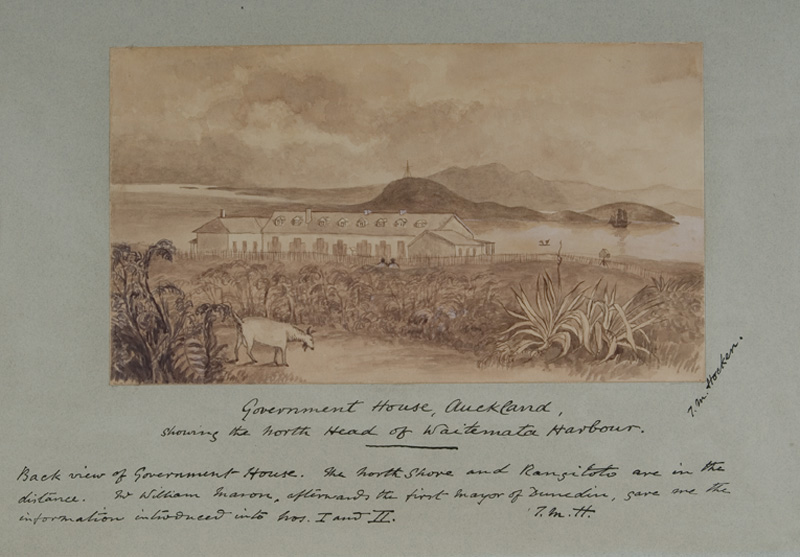 Government House, Auckland,
showing the North Head of Waitemata Harbour.
T. M. Hocken.
Back view of Government House. The North Shore and Rangitoto are in the
distance. Mr William Mason, afterwards the first Mayor of Dunedin, gave me the
information introduced into Nos. I and II. T. M. H.